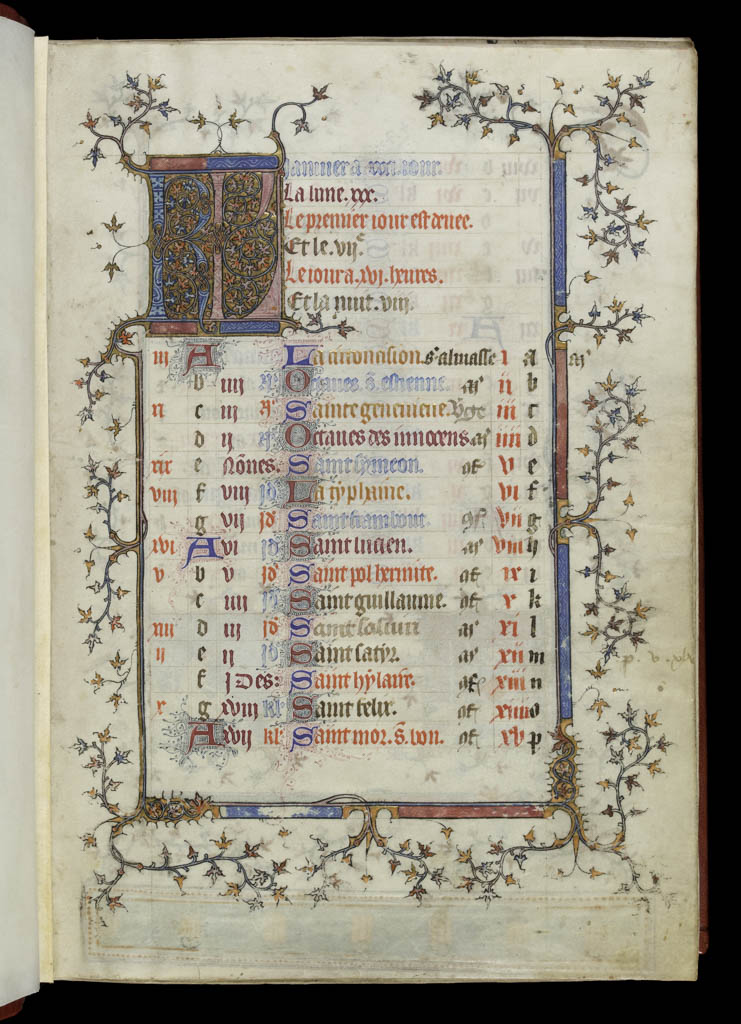 KL Januier a xxxi. iour.
La lune. xxx.
Le premier iour est
Et le. vij.e
Le iour a. xvi. heures.
Et la nuit. viij.
iij A La circoncision i a
b iiij Octaues s. estienne. ii b
xi c iij Sainte geneuieue. iii c
d ij Octaues des innocens iiii d
xix e Nones. Saint symeon. v e
viij f viij id La typhaine. vi f
g vij id Saint vii g
xvi A vi id Saint lucien. viii h
v b v id Saint pol hermite. ix i
c iiij id Saint guillaume. x k
xiij d iij id Saint xi l
ij e ij id Saint satyr. xii m
f Ides: Saint hylaire. xiii n
x g xviij kl Saint felix. xiiii o
A xvij kl Saint mor. s. bon. xv p